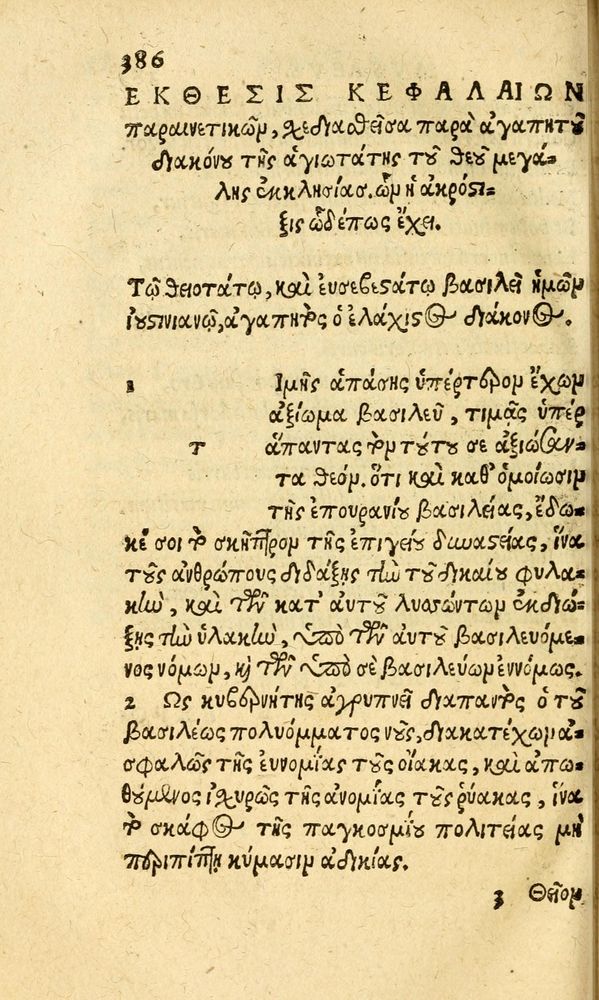 386
ΕΚΘΕΣΙΣ ΚΕΦΑΛΑΙΩΝ
παραινετικῶν, σχεδιασθεῖσα παρὰ ἀγαπητοῦ
διακόνου τῆς ἁγιωτάτης τοῦ θεοῦ μεγά-
λης ἐκκλησίας. ὧν ἡ ἀκρόστι-
ξις ὧδέ πως ἔχει.
Τῷ θειοτάτῳ, καὶ ἐυσεβεστάτῳ βασιλεῖ ἡμῶν
ἰουστινιανῷ, ἀγαπητὸς ὁ ἐλάχιστος διάκονος.
1 Ιμῆς ἁπάσης ὑπέρτερον ἔχων
ἀξίωμα βασιλεῦ, τιμᾷς ὑπὲρ
τ ἅπαντας τὸν τούτου σε ἀξιώσαν-
τα θεόν. ὅτι καὶ καθ' ὁμοίωσιν
τῆς ἐπουρανίου βασιλείας, ἔδω-
κέ σοι τὸ σκῆπτρον τῆς ἐπιγείου δυναστείας, ἵνα
τοὺς ἀνθρώπους διδάξῃς τὴν τοῦ δικαίου φυλα-
κὴν, καὶ τῶν κατ' αὐτοῦ λυσσώντων ἐκδιώ-
ξῃς τὴν ὑλακὴν, ὑπὸ τῶν αὐτοῦ βασιλευόμε-
νος νόμων, καὶ τῶν ὑπὸ σὲ βασιλεύων ἐννόμως.
2 Ως κυβερνήτης ἀγρυπνεῖ διαπαντὸς ὁ τοῦ
βασιλέως πολυόμματος νοῦς, διακατέχων ἀ-
σφαλῶς τῆς ἐυνομίας τοὺς οἴακας, καὶ ἀπω-
θούμενος ἰσχυρῶς τῆς ἀνομίας τοὺς ῥύακας, ἵνα
τὸ σκάφος τῆς παγκοσμίου πολιτείας μὴ
περιπίπτῃ κύμασιν ἀδικίας.
3 Θεῖον